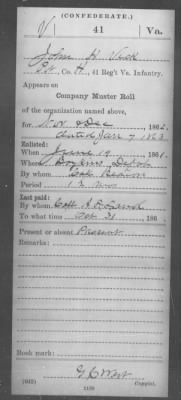 (CONFEDERATE.)
V 41 Va.
John H
Co. H, 41 Reg't Va. Infantry.
Appears on
Company Muster Roll
of the organization named above,
for Nov & Dec, 1862.
dated Jan 7 1863
Enlisted:
When June 19, 1861.
Where Boykins Depot
By whom
Period 12 mos
Last paid:
By whom Capt
To what time Oct 31, 186
Present or absent Present
Remarks:
Book mark:
(642) Copyist.